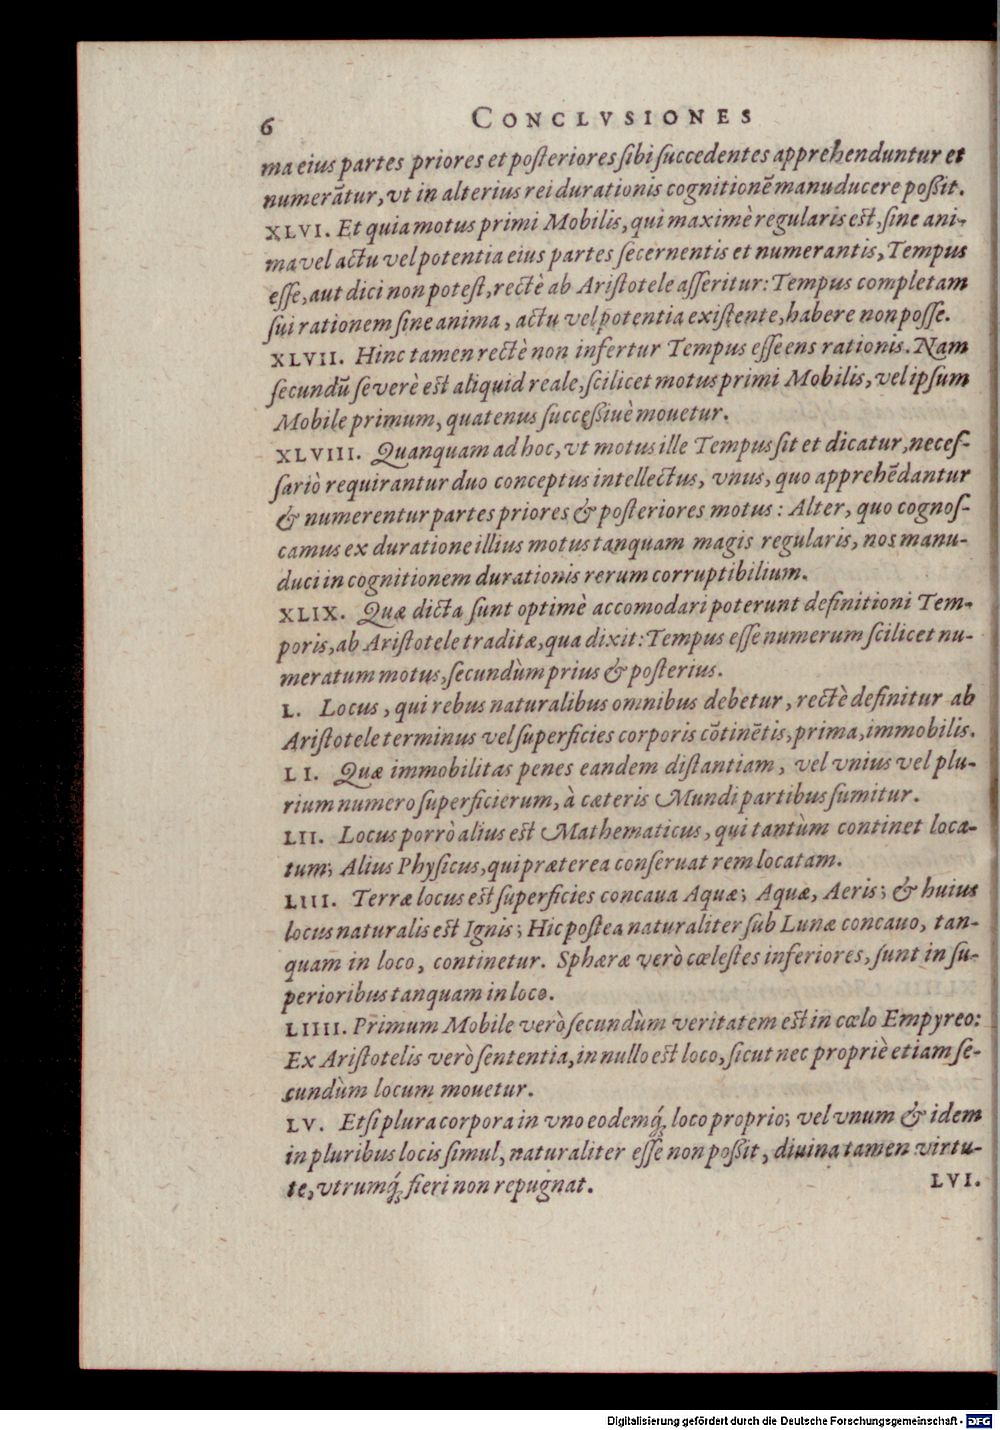 6 CONCLVSIONES
ma eius partes priores et poſteriores ſibi ſuccedentes apprehenduntur et
numerātur, vt in alterius rei durationis cognitionē manuducere poßit.
XLVI. Et quia motus primi Mobilis, qui maximè regularis eſt, ſine ani-
ma vel actu vel potentia eius partes ſecernentis et numerantis, Tempus
eſſe, aut dici non poteſt, rectè ab Ariſtotele aſſeritur: Tempus completam
ſui rationem ſine anima, actu vel potentia exiſtente, habere non poſſe.
XLVII. Hinc tamen rectè non infertur Tempus eſſe ens rationis. Nam
ſecundū ſe verè eſt aliquid reale, ſcilicet motus primi Mobilis, vel ipſum
Mobile primum, quatenus ſucceßiuè mouetur.
XLVIII. Quanquam ad hoc, vt motus ille Tempus ſit et dicatur, neceſ-
ſariò requirantur duo conceptus intellectus, vnus, quo apprehēdantur
& numerentur partes priores & poſteriores motus: Alter, quo cognoſ-
camus ex duratione illius motus tanquam magis regularis, nos manu-
duci in cognitionem durationis rerum corruptibilium.
XLIX. Quæ dicta ſunt optimè accomodari poterunt definitioni Tem-
poris, ab Ariſtotele traditæ, qua dixit: Tempus eſſe numerum ſcilicet nu-
meratum motus, ſecundùm prius & poſterius.
L. Locus, qui rebus naturalibus omnibus debetur, rectè definitur ab
Ariſtotele terminus vel ſuperficies corporis cōtinētis, prima, immobilis.
LI. Quæ immobilitas penes eandem diſtantiam, vel vnius vel plu-
rium numero ſuperficierum, à cæteris Mundi partibus ſumitur.
LII. Locus porrò alius eſt Mathematicus, qui tantùm continet loca-
tum; Alius Phyſicus, qui præterea conſeruat rem locatam.
LIII. Terræ locus eſt ſuperficies concaua Aquæ; Aquæ, Aeris; & huius
locus naturalis eſt Ignis; Hic poſtea naturaliter ſub Lunæ concauo, tan-
quam in loco, continetur. Sphæræ verò cœleſtes inferiores, ſunt in ſu-
perioribus tanquam in loco.
LIIII. Primum Mobile verò ſecundùm veritatem eſt in cœlo Empyreo:
Ex Ariſtotelis verò ſententia, in nullo eſt loco, ſicut nec propriè etiam ſe-
cundùm locum mouetur.
LV. Etſi plura corpora in vno eodemq́; loco proprio; vel vnum & idem
in pluribus locis ſimul, naturaliter eſſe non poßit, diuina tamen virtu-
te, vtrumq́; fieri non repugnat. LVI.
Digitalisierung gefördert durch die Deutsche Forschungsgemeinschaft - DFG